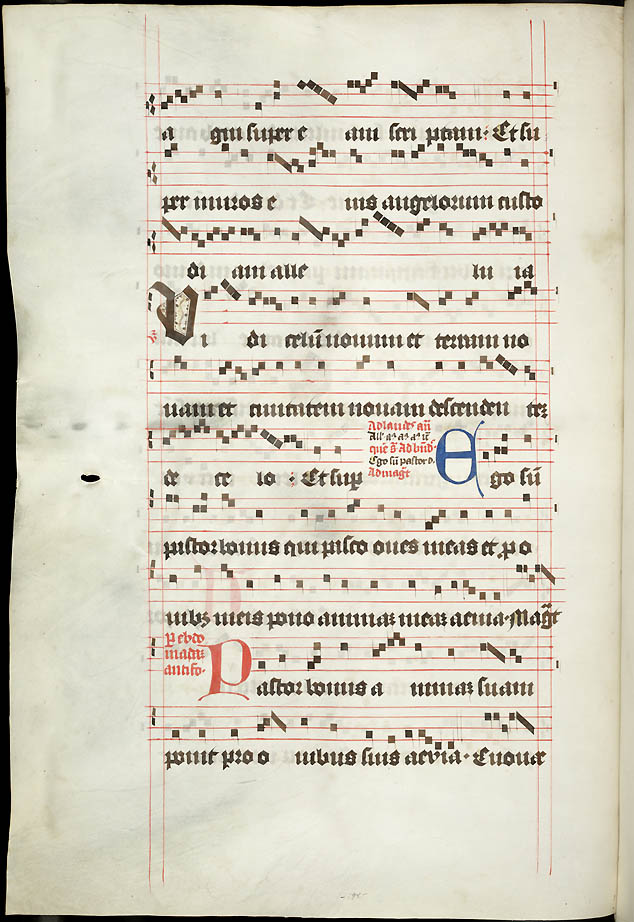 a gni super e am scri ptam : Et su
per muros e ius angelorum custo
di am alle lu ia
V i di celū nouum et terram no
uam et ciuitatem nouam descenden teꝫ
Ad laud' añ
All' a' a' a'
Ad bñd'
Ego sū pastor
Ad magt
de ce lo · Et sup E go sū
pastor bonus qui pasco oues meas et p̱ o
uibꝫ meis pono animaꝫ meaꝫ aeuia · Magt
p̱ ebdo
madā
antifo·
P astor bonus a nimaꝫ suam
ponit pro o uibus suis aevia · Euouae